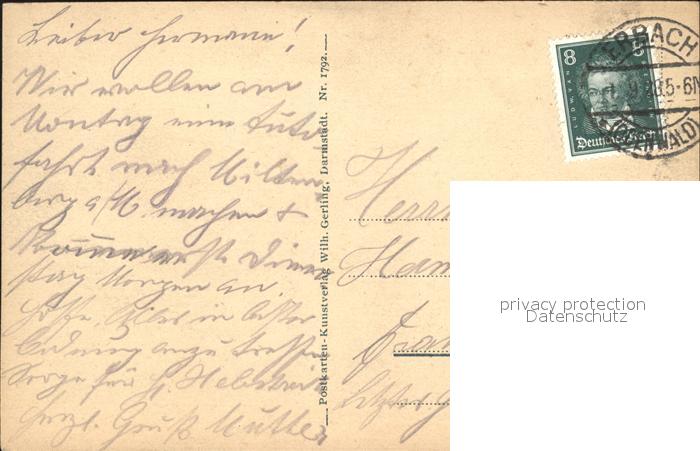 Lieber Hermann!
Wir wollen am
Montag eine Auto
fahrt nach Milten
berg a/M. machen &
kommen erst Diens
tag Morgen an.
Hoffe, Alles in bester
Ordnung anzutreffen
Sorge für
herzl. Gruß Mutter
Postkarten-Kunstverlag Wilh. Gerling, Darmstadt. Nr. 1792.
8 8
LUDW. VAN
Deutsches Reich
ERBACH
9.28.5-6N
(ODENWALD)
Herrn
Ham
Fran
privacy protection
Datenschutz